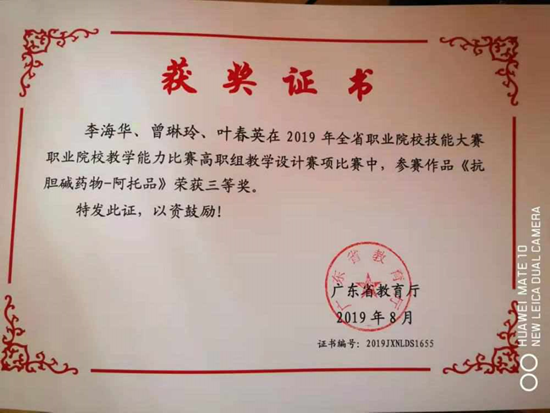 获奖证书
李海华、曾琳玲、叶春英在 2019 年全省职业院校技能大赛
职业院校教学能力比赛高职组教学设计赛项比赛中，参赛作品《抗
胆碱药物-阿托品》荣获三等奖。
特发此证，以资鼓励！
广东省教育厅
广东省教育厅
2019 年 8 月
证书编号：2019JXNLDS1655
HUAWEI MATE 10
NEW LEICA DUAL CAMERA